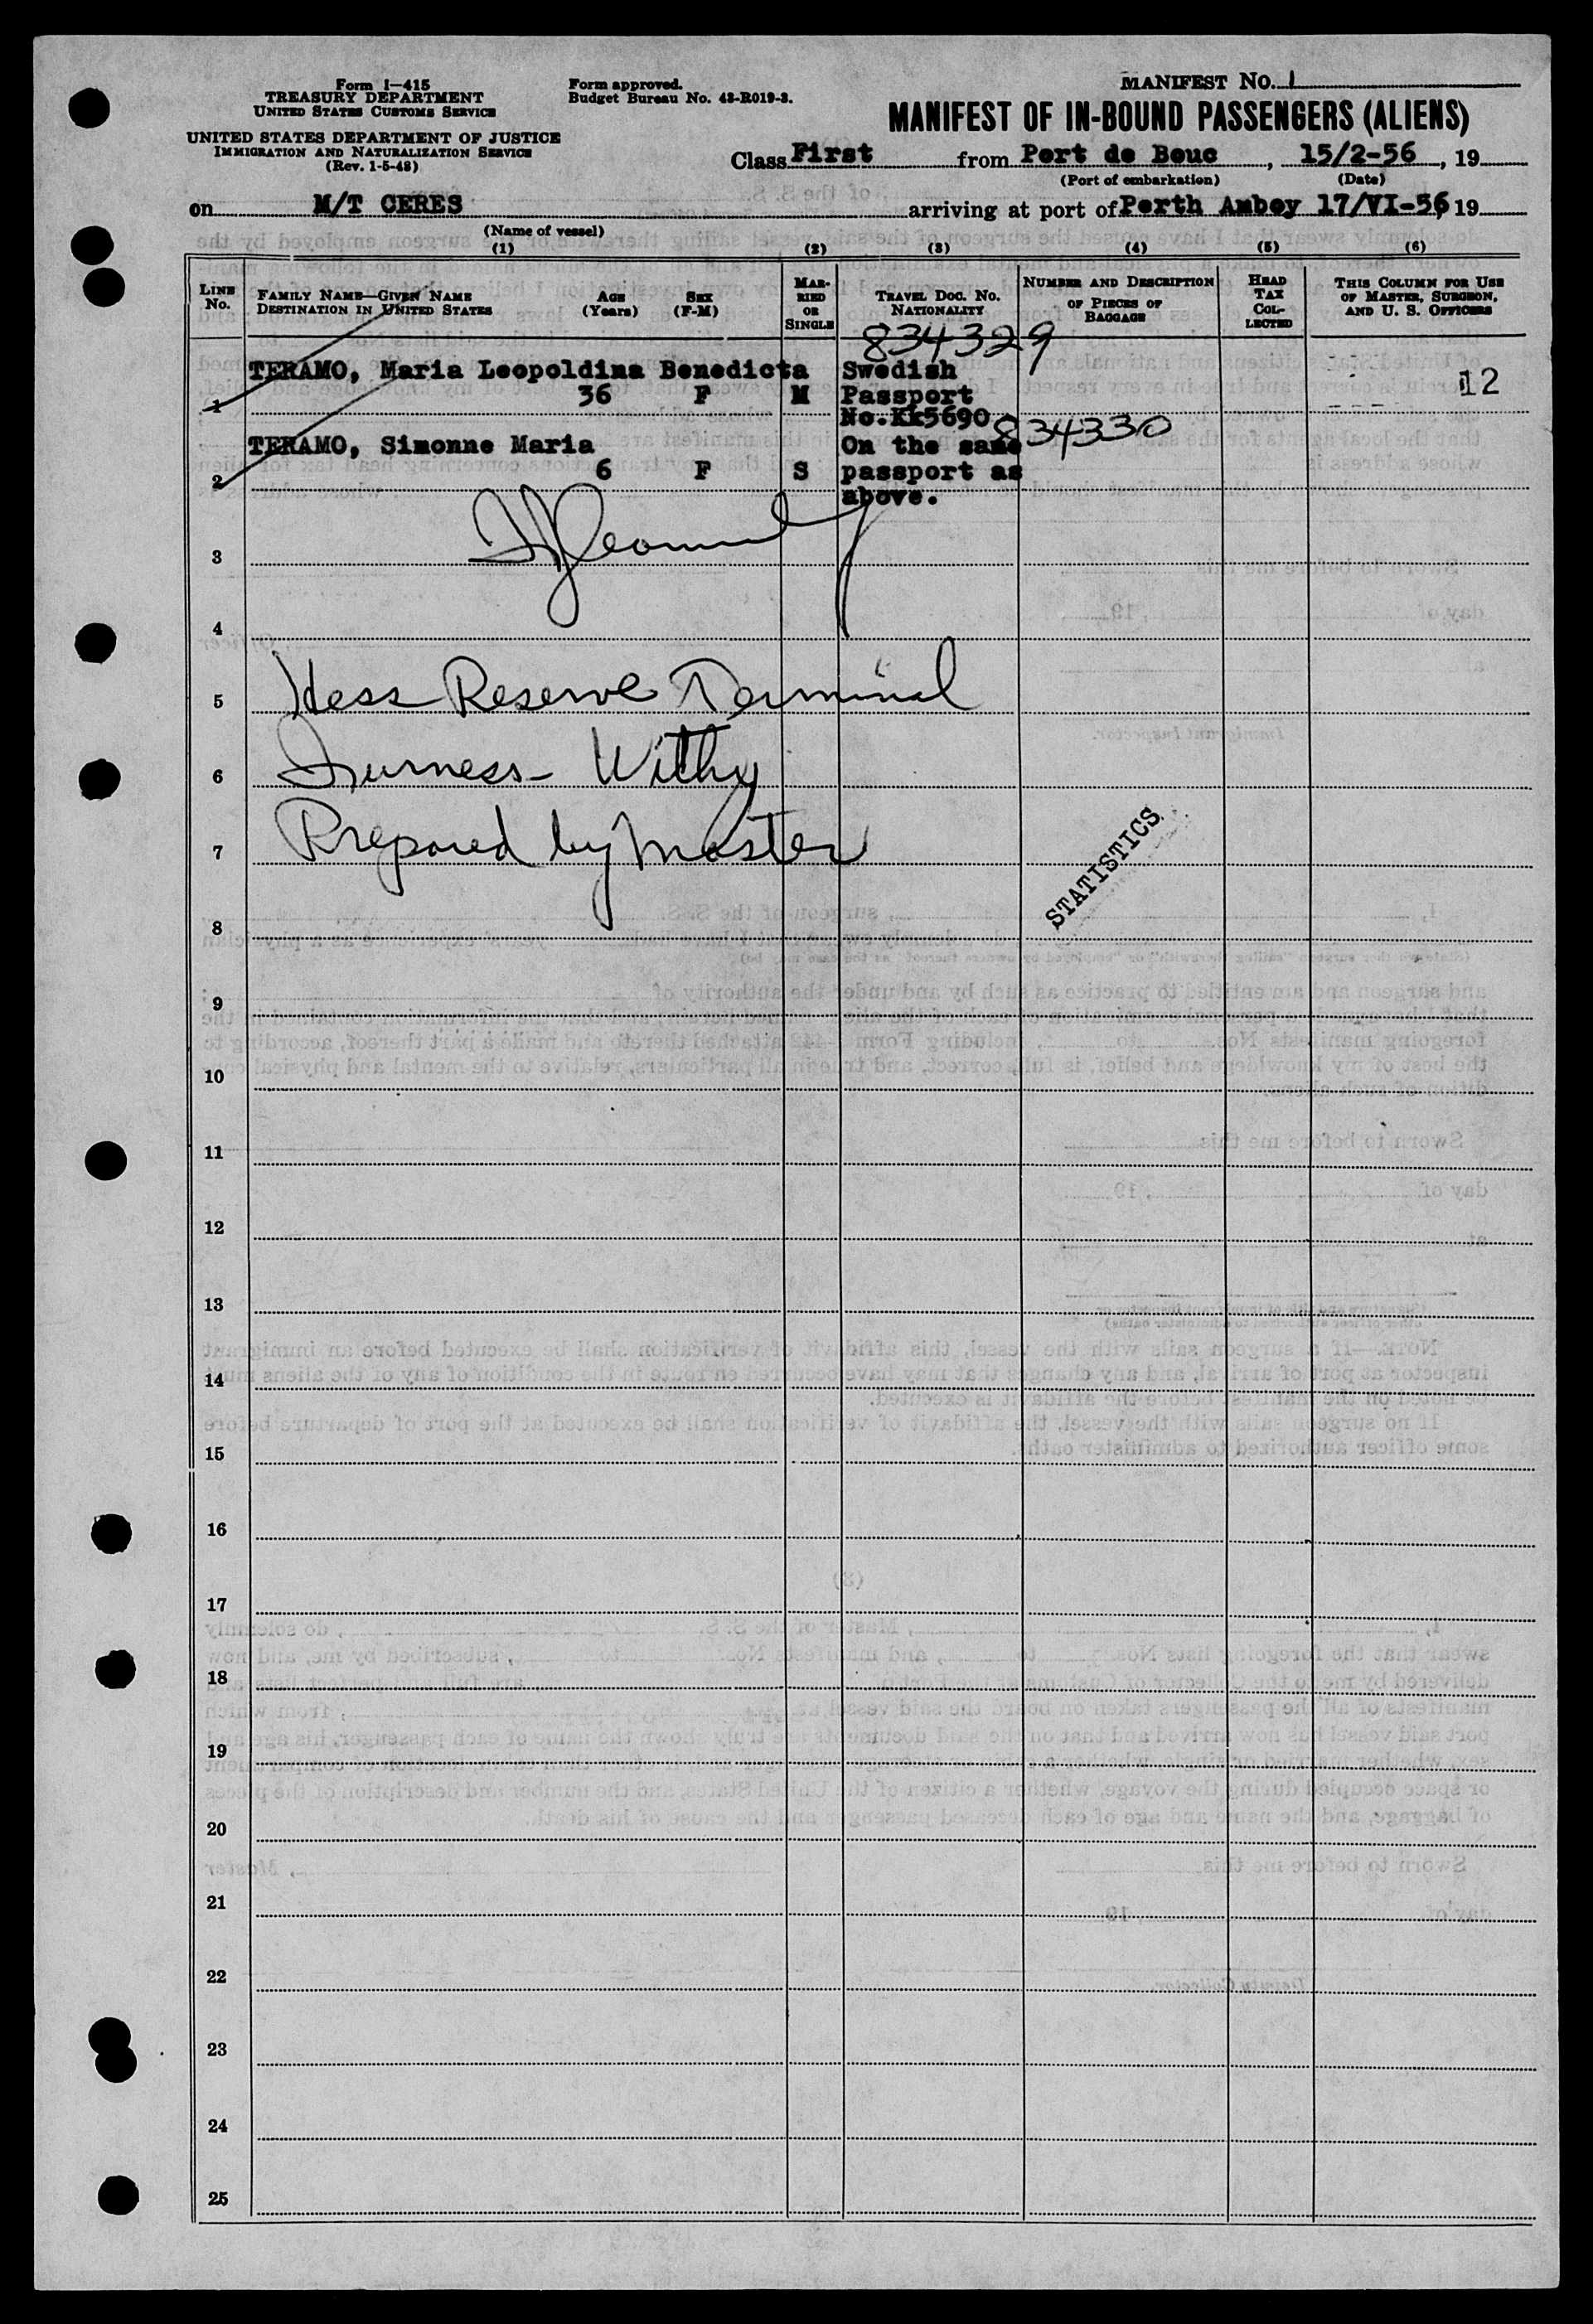 Form I-415
TREASURY DEPARTMENT
UNITED STATES CUSTOMS SERVICE
UNITED STATES DEPARTMENT OF JUSTICE
IMMIGRATION AND NATURALIZATION SERVICE
(Rev. 1-5-48)
Form approved.
Budget Bureau No. 43-R019-3.
MANIFEST NO. 1
MANIFEST OF IN-BOUND PASSENGERS (ALIENS)
Class First from Port de Bouc, 15/2-56, 19
(Port of embarkation) (Date)
on M/T CERES arriving at port of Perth Amboy 17/VI-56, 19
(Name of vessel)
(1) (2) (3) (4) (5) (6)
LINE No.
FAMILY NAME—GIVEN NAME AGE (Years) SEX (F-M)
DESTINATION IN UNITED STATES
MARRIED OR SINGLE
TRAVEL DOC. NO. NATIONALITY
NUMBER AND DESCRIPTION OF PIECES OF BAGGAGE
HEAD TAX COLLECTED
THIS COLUMN FOR USE OF MASTER, SURGEON, AND U. S. OFFICERS
834329
TERAMO, Maria Leopoldina Benedicta Swedish
1 36 F M Passport 12
No.Kk5690
834330
TERAMO, Simonne Maria On the same
2 6 F S passport as
above.
3
4
5 Hess Reserve Terminal
6 Furness- Withy
7 Prepared by Master
STATISTICS
8
9
10
11
12
13
14
15
16
17
18
19
20
21
22
23
24
25